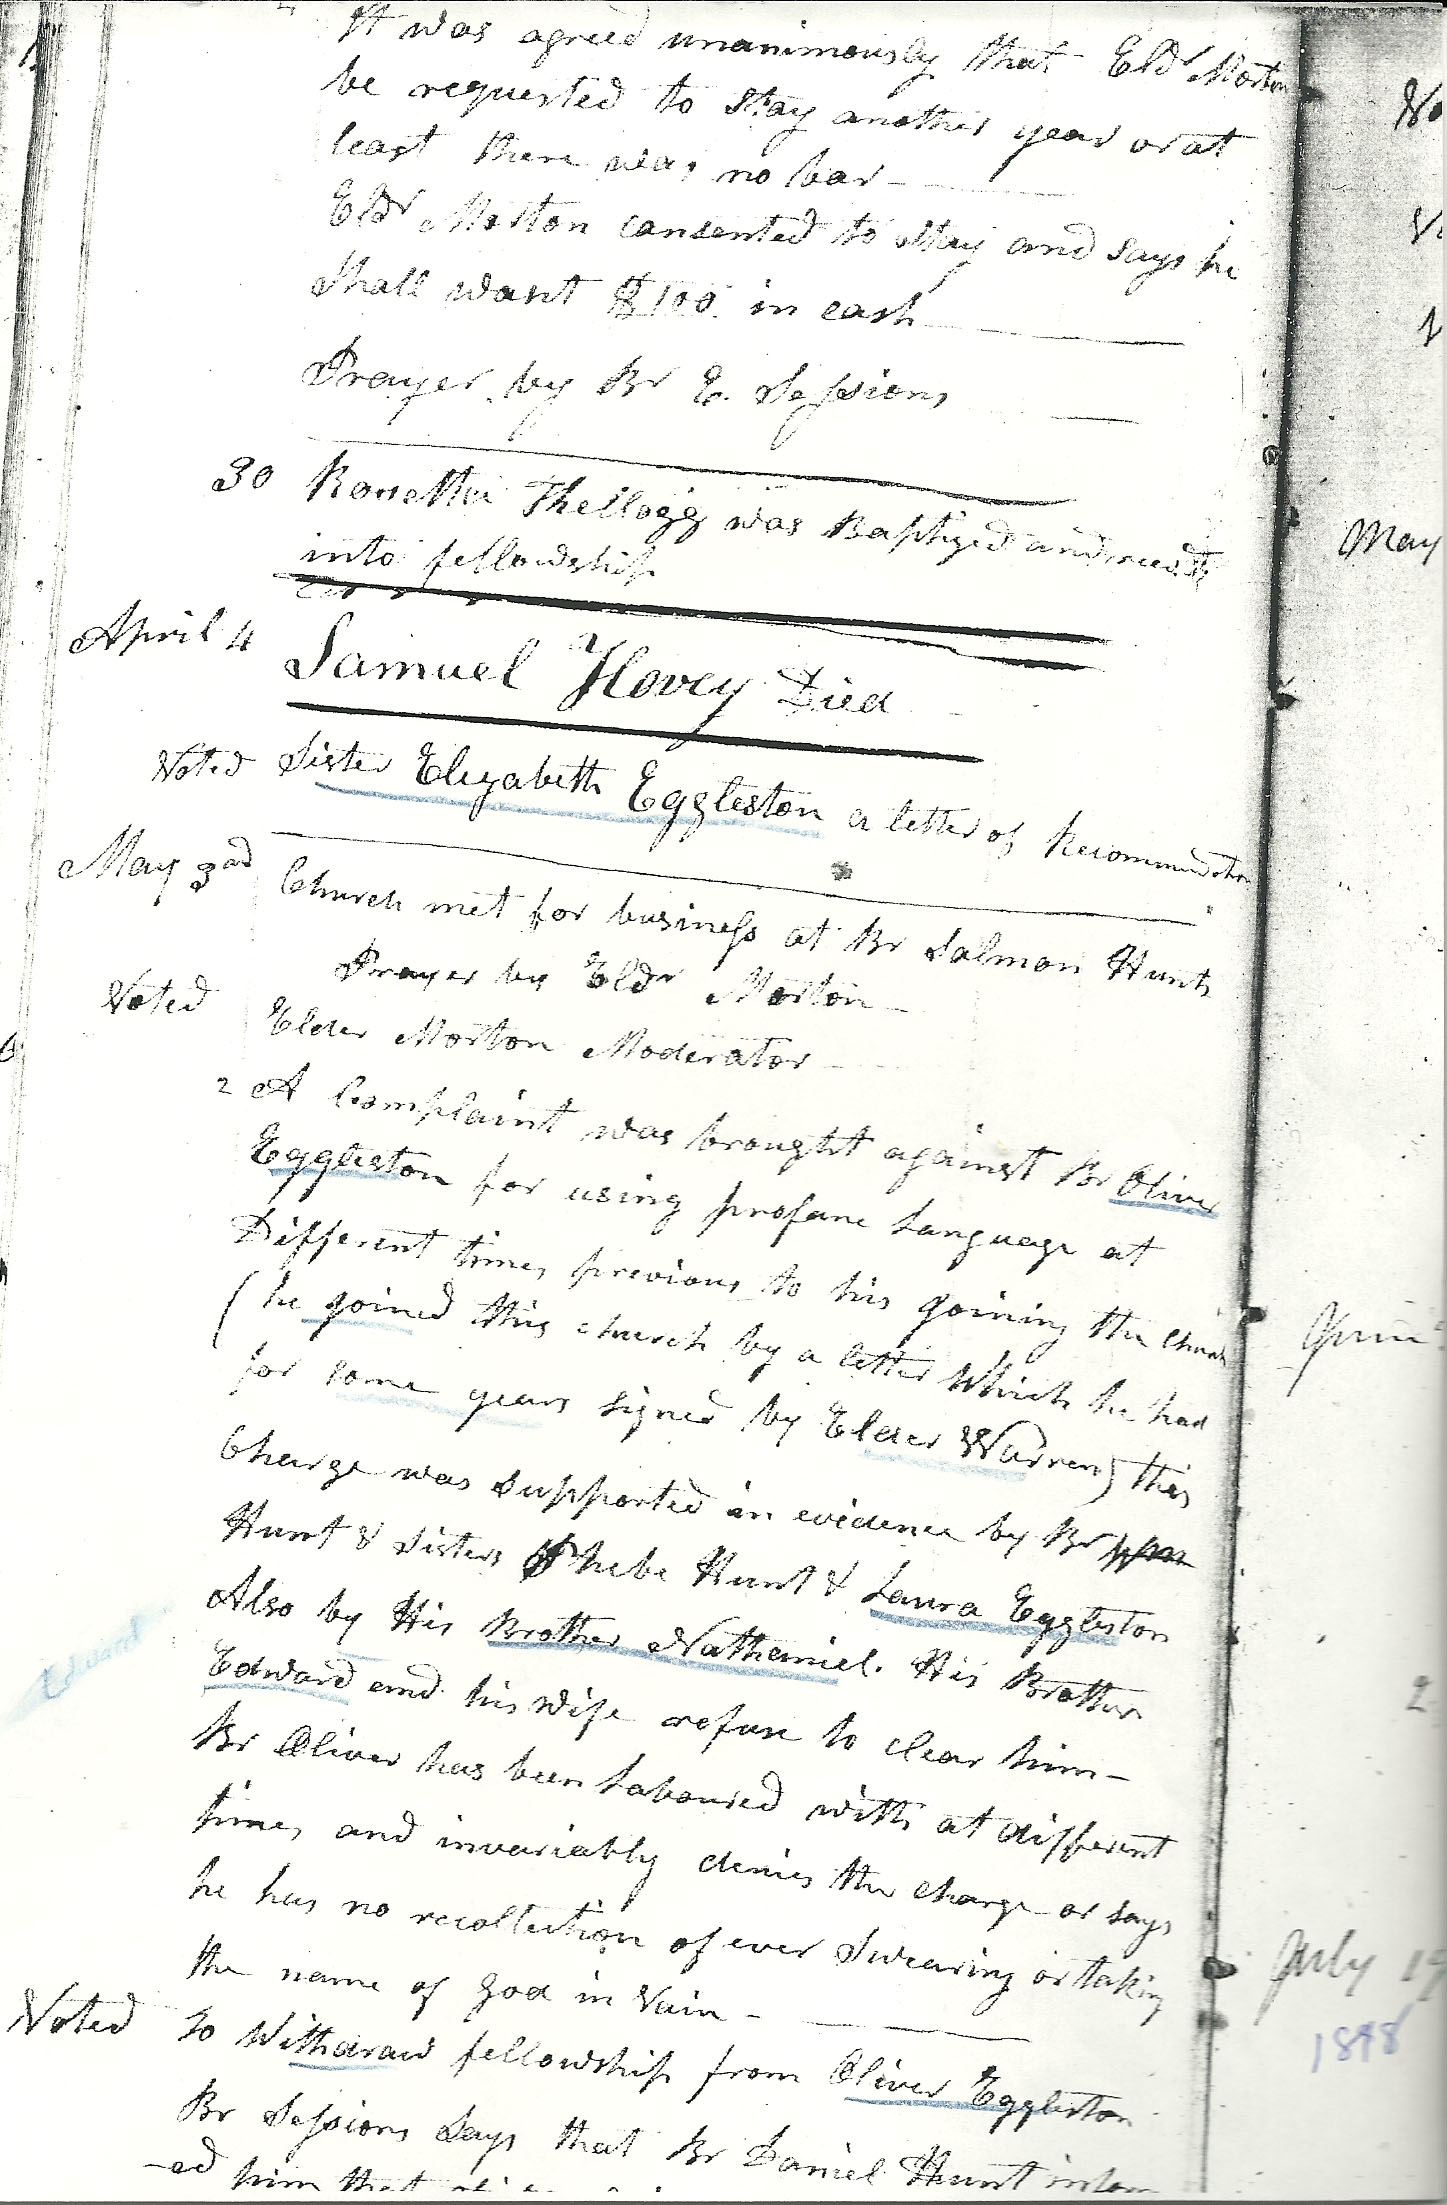 It was agreed unanimously that Eldr Morton
be requested to stay another year or at
least there was no bar
Eldr Morton consented to stay and says he
shall want $100 in cash
Prayer by Br E. Sessions
30 Rosetta Khellogg was Baptized and
into fellowship
April 4 Samuel Hovey Died
Voted Sister Elizabeth Eggleston a letter of Recommendation
May 3rd Church met for business at Br Salmon Hunts
Prayer by Eldr Morton
Voted Elder Morton Moderator
2 A Complaint was brought against Br Oliver
Eggleston for using profane Language at
Different times previous to his joining the church
( he joined this church by a letter which he had
for some years signed by Elder Warren) this
Charge was supported in evidence by Br
Hunt & Sisters Phebe Hunt & Laura Eggleston
Also by His Brother Nathaniel. His Brother
Edward
Edward and his wife refuse to clear him-
Br Oliver has been Laboured with at different
times and invariably denies the charge or says
he has no recollection of ever Swearing or taking
the name of God in Vain -
Voted to Withdraw fellowship from Oliver Eggleston
Br Sessions Says that Br Daniel Hunt inform
-ed him that
May
June
2
July 19
1848